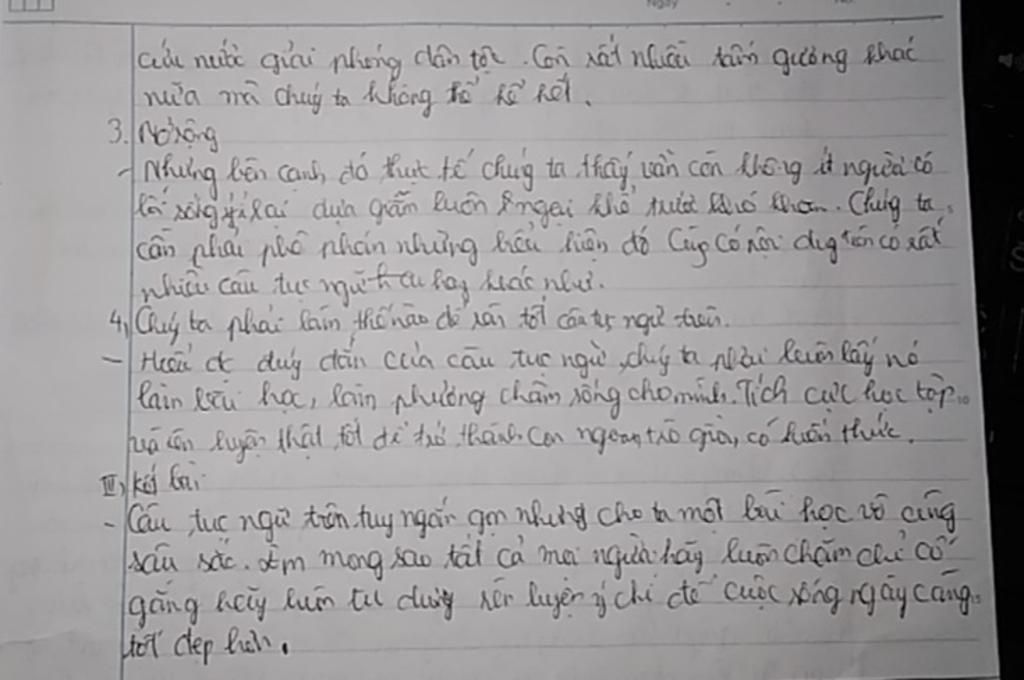 cứu nước giải phóng dân tộc. Còn rất nhiều tấm gương khác
nữa mà chúng ta không thể kể hết.
3. Mở rộng
- Nhưng bên cạnh đó thực tế chúng ta thấy vẫn còn không ít người có
lối sống ỷ lại dựa dẫm luôn ngại khổ trước khó khăn. Chúng ta
cần phải phê phán những biểu hiện đó Cũng có nội dung trên có rất
nhiều câu tục ngữ hay khác như.
4, Chúng ta phải làm thế nào để rèn tốt câu tục ngữ trên.
- Hiểu đc đúng đắn của câu tục ngữ, chúng ta phải luôn lấy nó
làm bài học, làm phương châm sống cho mình. Tích cực học tập
và rèn luyện thật tốt để trở thành con ngoan trò giỏi, có kiến thức.
III, Kết bài
- Câu tục ngữ trên tuy ngắn gọn nhưng cho ta một bài học vô cùng
sâu sắc. Em mong sao tất cả mọi người hãy luôn chăm chỉ cố
gắng hãy luôn tư duy rèn luyện ý chí để cuộc sống ngày càng
tốt đẹp hơn.